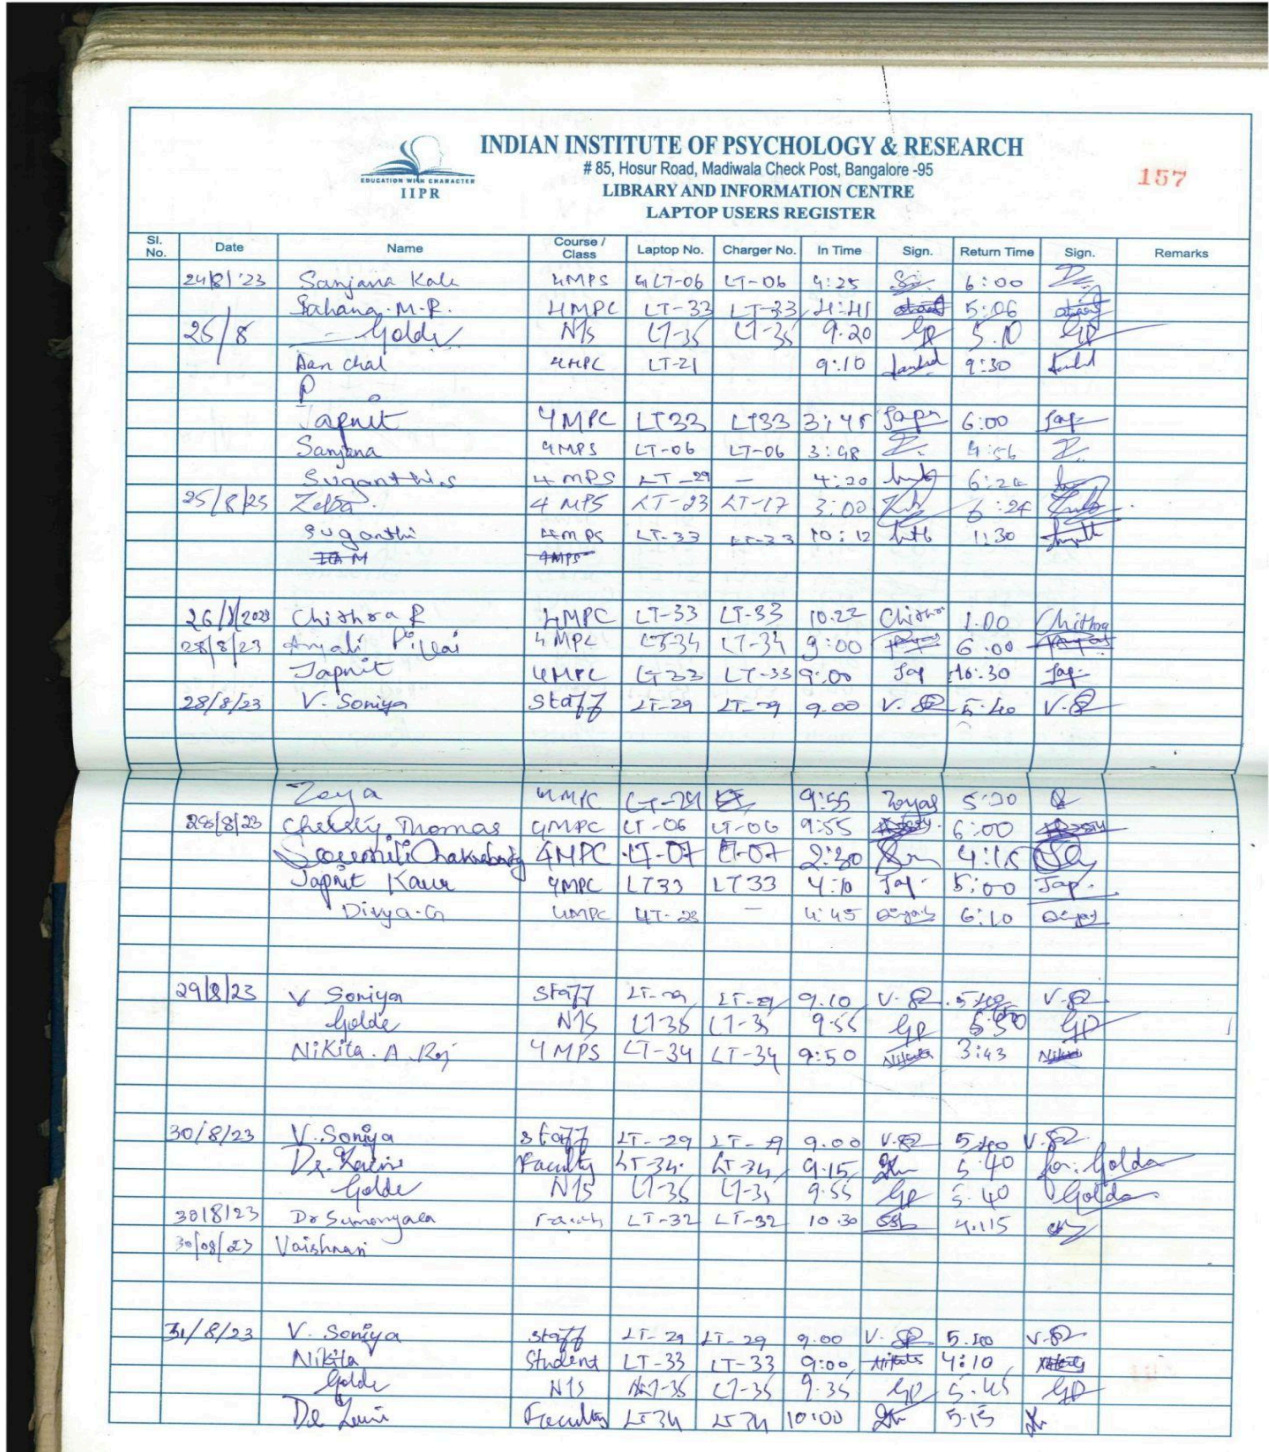 INDIAN INSTITUTE OF PSYCHOLOGY & RESEARCH
# 85, Hosur Road, Madiwala Check Post, Bangalore -95
EDUCATION WITH CHARACTER
IIPR
LIBRARY AND INFORMATION CENTRE
LAPTOP USERS REGISTER
157
Sl. No. Date Name Course / Class Laptop No. Charger No. In Time Sign. Return Time Sign. Remarks
24/8/'23 Sanjana Kale 4MPS LT-06 LT-06 4:25 6:00
Sahana. M.R. 4MPC LT-33 LT-33 4:41 5:06
25/8 Golde N/S LT-35 LT-35 9.20 GP 5.10 GP
Aan chal 4MPC LT-21 9:10 9:30
P
Japnit 4MPC LT33 LT33 3:45 Jap 6:00 Jap
Sanjana 4MPS LT-06 LT-06 3:48
Suganthi.s 4 MPS LT-29 — 4:20
25/8/23 Zeba. 4 MPS LT-23 LT-17 3:00 6:24
Suganthi 4MPS LT-33 LT-33 10:12 11:30
4MPS
26/8/2023 Chithra R 4MPC LT-33 LT-33 10.22 Chithra 1.00 Chithra
28/8/23 Anjali Pillai 4MPC LT34 LT-34 9:00 6.00
Japnit 4MPC LT33 LT-33 9:00 Jap 10:30 Jap
28/8/23 V. Soniya Staff LT-29 LT-29 9.00 5.40
Zoya 4MPC LT-29 9:55 Zoya 5:30
28/8/23 Christy Thomas 4MPC LT-06 LT-06 9:55 6:00
Chakraborty 4MPC LT-07 LT-07 2:30 4:15
Japnit Kaur 4MPC LT33 LT33 4:10 Jap. 5:00 Jap.
Divya.G 4MPC LT-28 — 4:45 6:10
29/8/23 V Soniya Staff LT-29 LT-29 9.10 5.40
Golde N/S LT-35 LT-35 9.55 GP 5.50 GP
Nikita. A. Roj 4MPS LT-34 LT-34 9:50 Nikita 3:43 Nikita
30/8/23 V. Soniya Staff LT-29 LT-29 9.00 5.40
Dr. Faculty LT-34. LT-34 9.15 5.40 for: Golda
Golde N/S LT-35 LT-35 9.55 GP 5.40 Golda
30/8/23 Dr LT-32 LT-32 10.30 4.15
30/08/23 Vaishnavi
31/8/23 V. Soniya Staff LT-29 LT-29 9.00 5.40
Nikita Student LT-33 LT-33 9:00 Nikita 4:10 Nikita
Golde N/S LT-35 LT-35 9.35 GP 5.45 GP
Faculty LT34 LT34 10:00 5.15